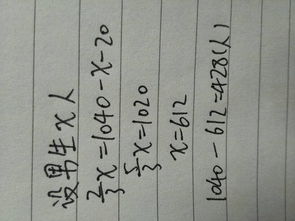 设男生x人
2/3x=1040-x-20
5/3x=1020
x=612
1040-612=428(人)